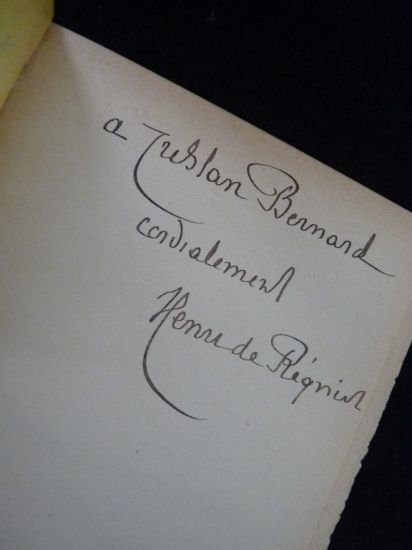 a Tristan Bernard
cordialement
Henri de Régnier